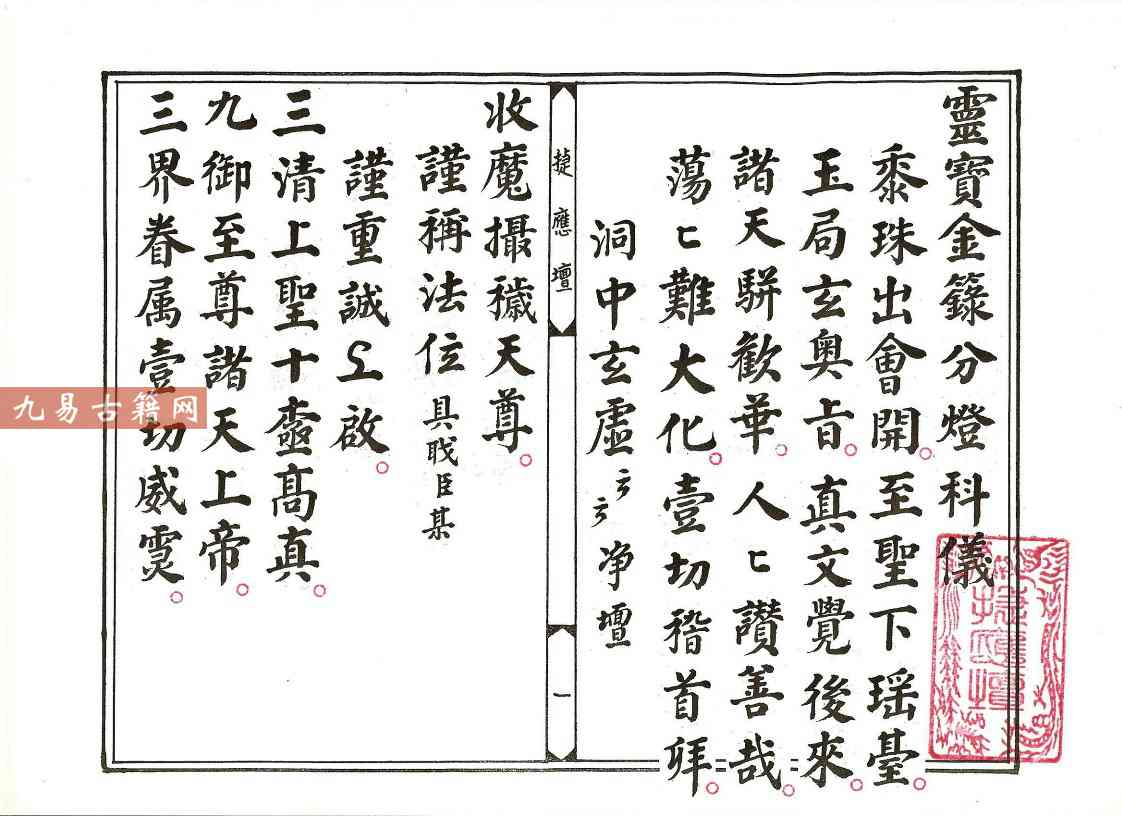 靈寶金籙分燈科儀
黍珠出會開至聖下瑶臺
玉局玄奥旨真文覺後來
諸天駢歡華人匕讚善哉
蕩匕難大化壹切稽首拜
洞中玄虛云云净壇
捷應壇
一
收魔攝穢天尊
謹稱法位具职臣某
謹重誠上啟
三清上聖十𡔷髙真
九御至尊諸天上帝
三界眷属壹切威灵
九易古籍网
捷應壇